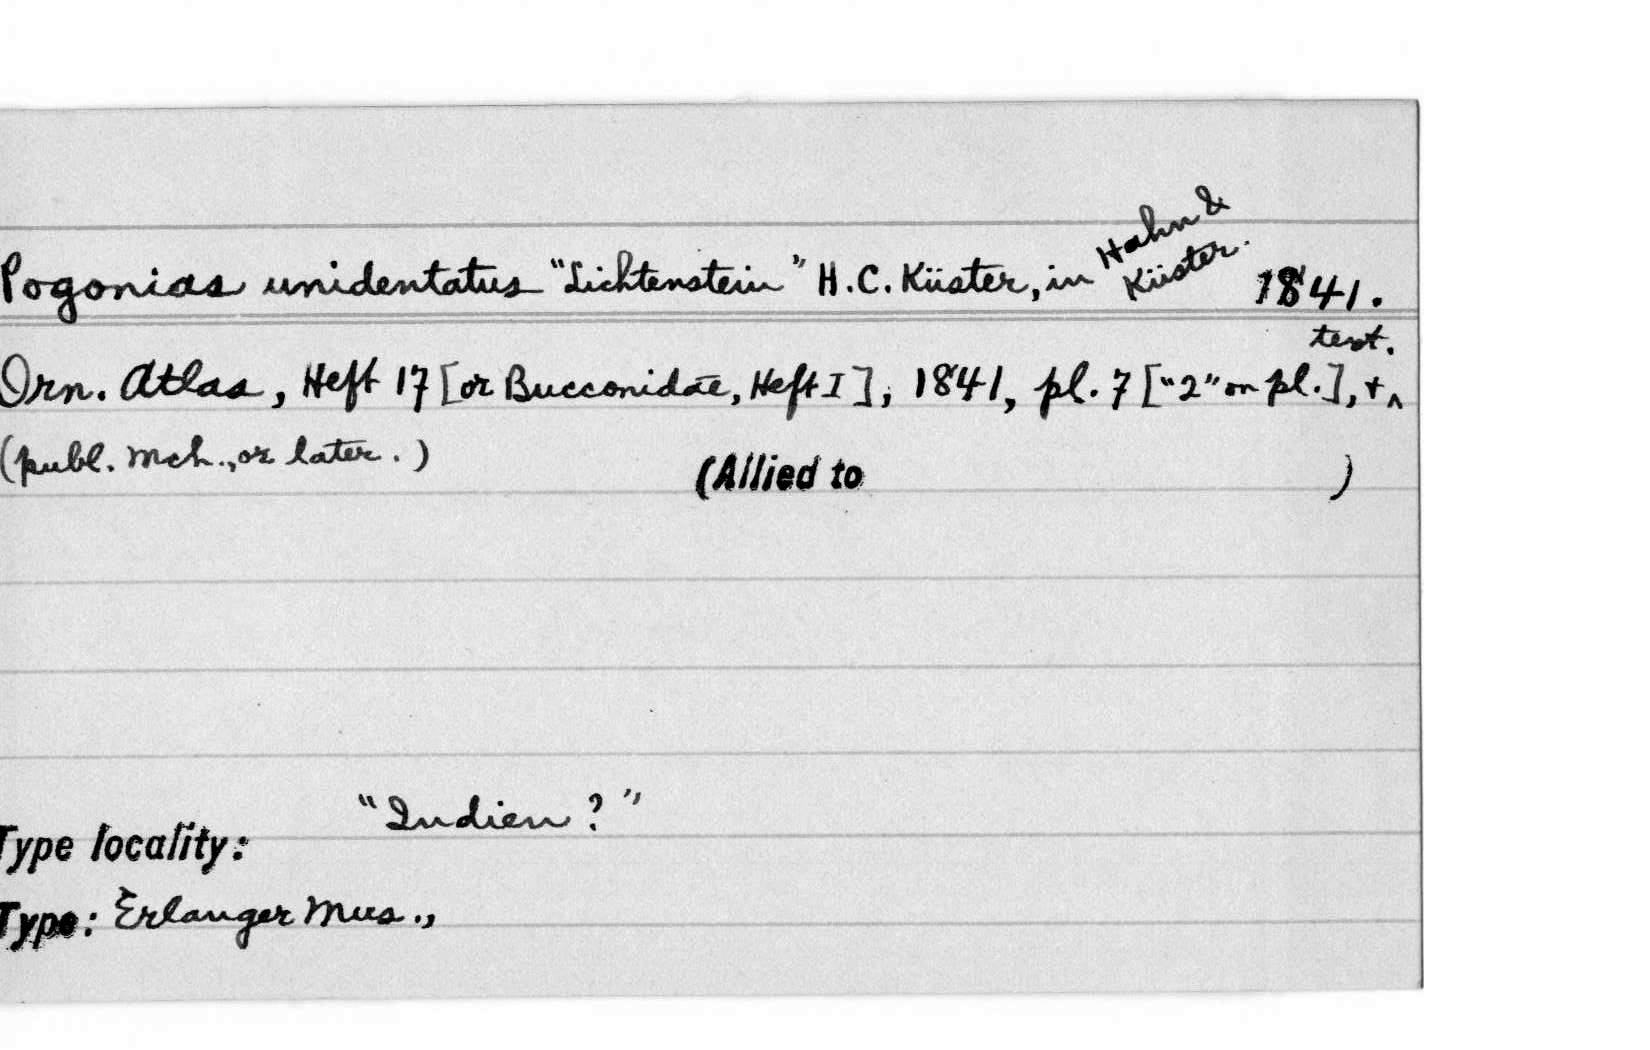 Pogonias unidentatus "Lichtenstein" H.C. Küster, in Hahn & Küster. 1841.
Orn. Atlas, Heft 17 [or Bucconidae, Heft I], 1841, pl. 7 ["2" on pl.], + text.
(publ. Mch., or later.)
(Allied to )
"Indien?"
Type locality:
Type: Erlanger Mus.,